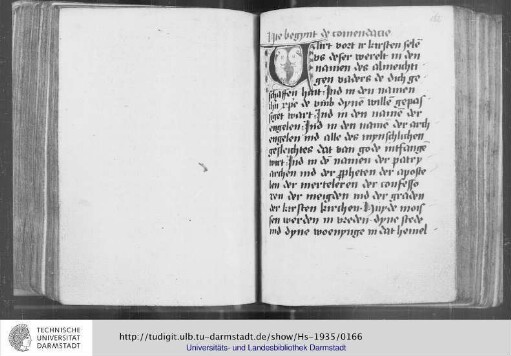 Hie begynt de comendacie
Uairt vort ir kirsten sele
vs deser werelt in den
namen des almechti
gen vaders de dich ge
schaffen hait Jnd in den namen
ihu xpe de vmb dyne wille gepas
siget wart Jnd in den namē der
engelen Jnd in den namē der arch
engelen ind alle des mynschlichen
geslechtes dat van gode intfangē
wirt Jnd in dē namen der patry
archen ind der ꝓpheten der aposte
len der merteleren der confesso
ren der meigden ind der graden
der kirsten kirchen Huyde mois
sen werden in vreden dyne stede
ind dyne woenynge in dat hemel
TECHNISCHE
UNIVERSITÄT
DARMSTADT
http://tudigit.ulb.tu-darmstadt.de/show/Hs-1935/0166
Universitäts- und Landesbibliothek Darmstadt